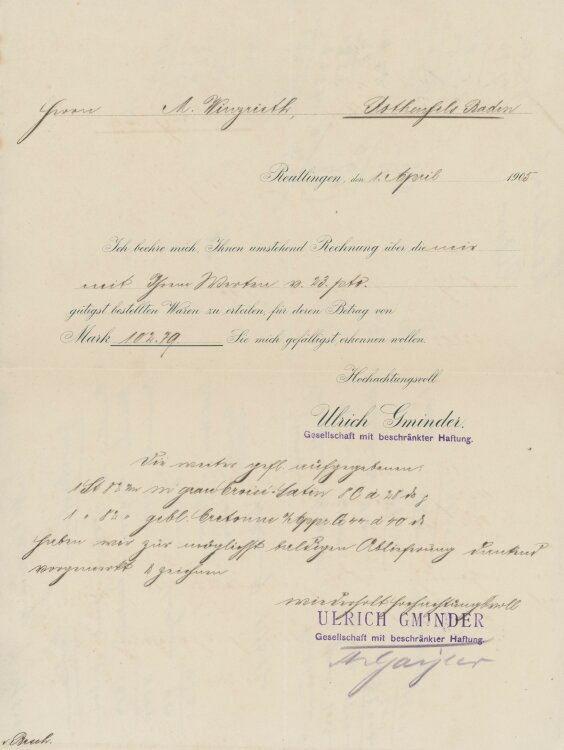 Herrn A. Wingrieth, Rothenfels Baden
Reutlingen, den 1. April 1905
Ich beehre mich, Ihnen umstehend Rechnung über die mir
mit Ihrem Werten v. 23. pto.
gütigst bestellten Waren zu erteilen, für deren Betrag von
Mark 102.79 Sie mich gefälligst erkennen wollen.
Hochachtungsvoll
Ulrich Gminder.
Gesellschaft mit beschränkter Haftung.
Die weiter gefl. aufgegebenen:
1 St 82 grau Croisé-Satin 80 à 28
1 " 82 " gebl. Cretonne 44 à 40
haben wir zur möglichst baldigen Ablieferung dankend
vorgemerkt & zeichnen
wiederholt hochachtungsvoll
ULRICH GMINDER
Gesellschaft mit beschränkter Haftung.